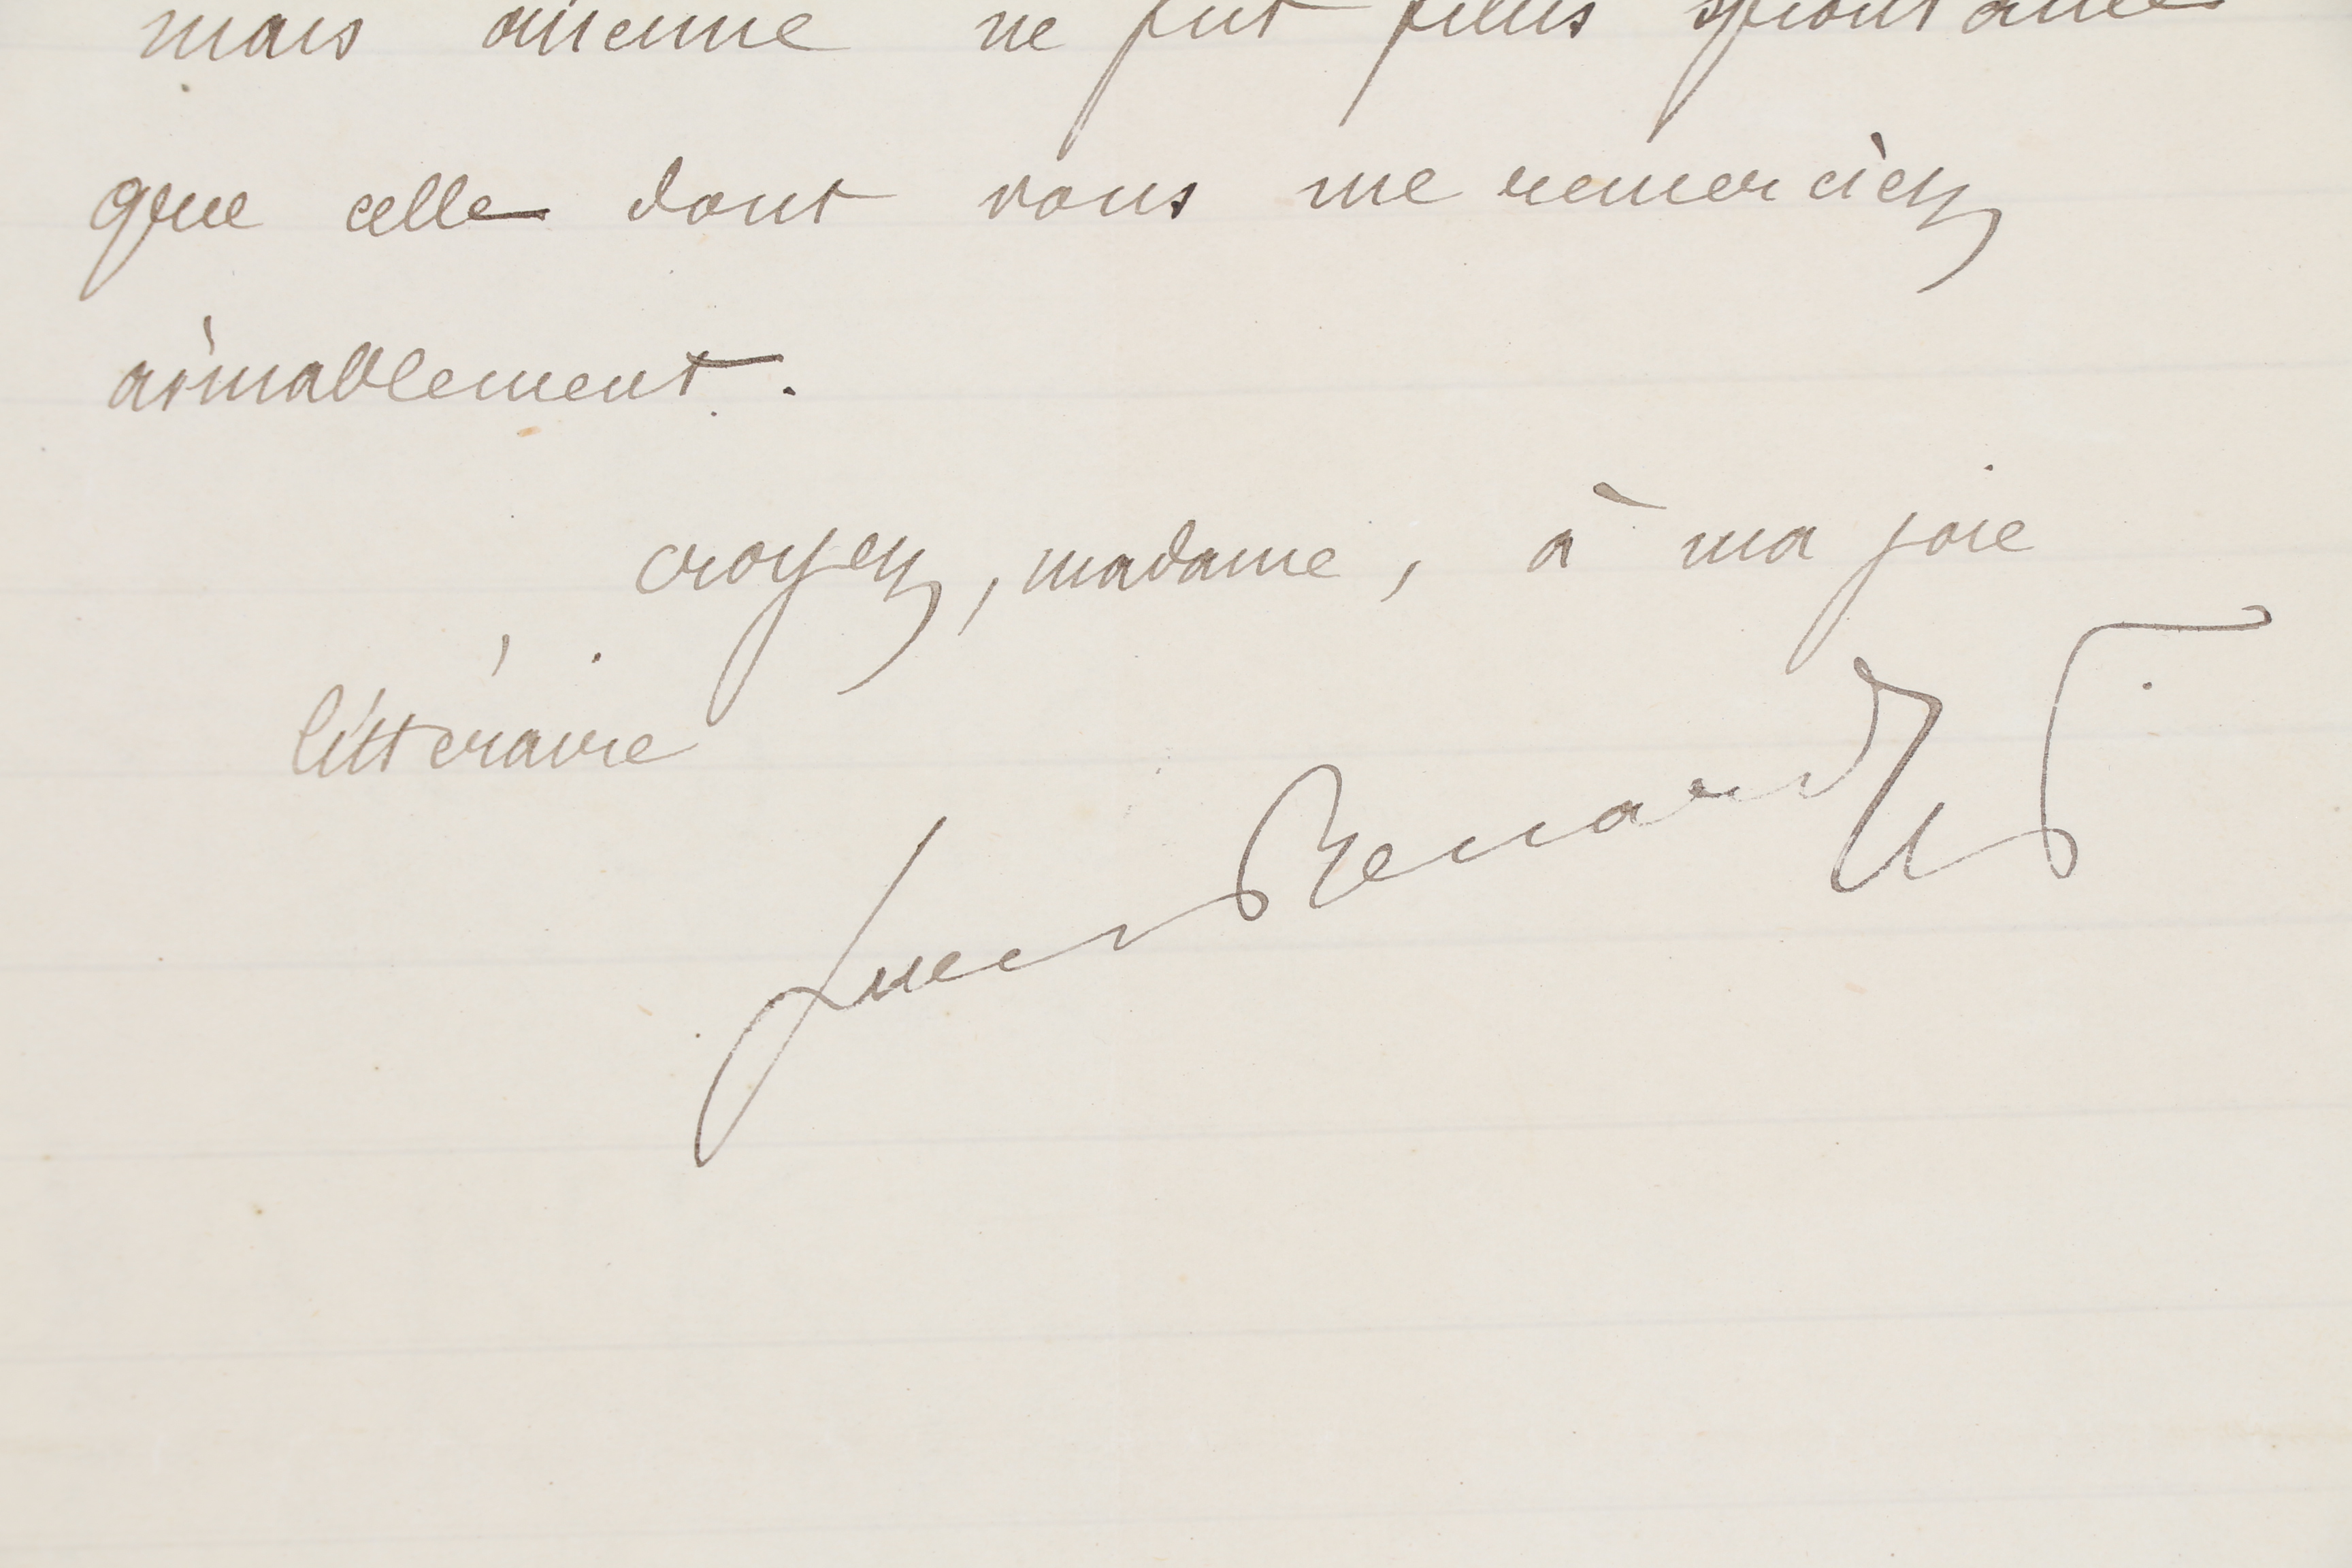 mais aucune ne fut plus spontanée
que celle dont vous me remerciez
aimablement.
croyez, madame, à ma joie
littéraire
Jules Renard